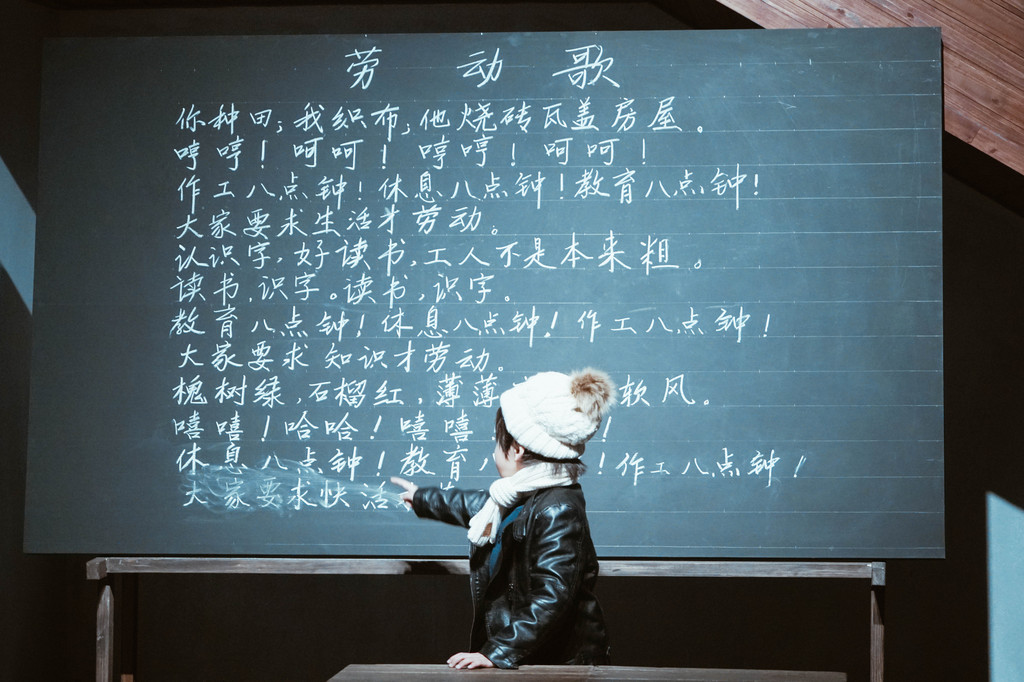 劳动歌
你种田；我织布；他烧砖瓦盖房屋。
哼哼！呵呵！哼哼！呵呵！
作工八点钟！休息八点钟！教育八点钟！
大家要求生活才劳动。
认识字，好读书，工人不是本来粗。
读书，识字。读书，识字。
教育八点钟！休息八点钟！作工八点钟！
大家要求知识才劳动。
槐树绿，石榴红，薄薄 软风。
嘻嘻！哈哈！嘻嘻！ ！
休息八点钟！教育八 ！作工八点钟！
大家要求快活